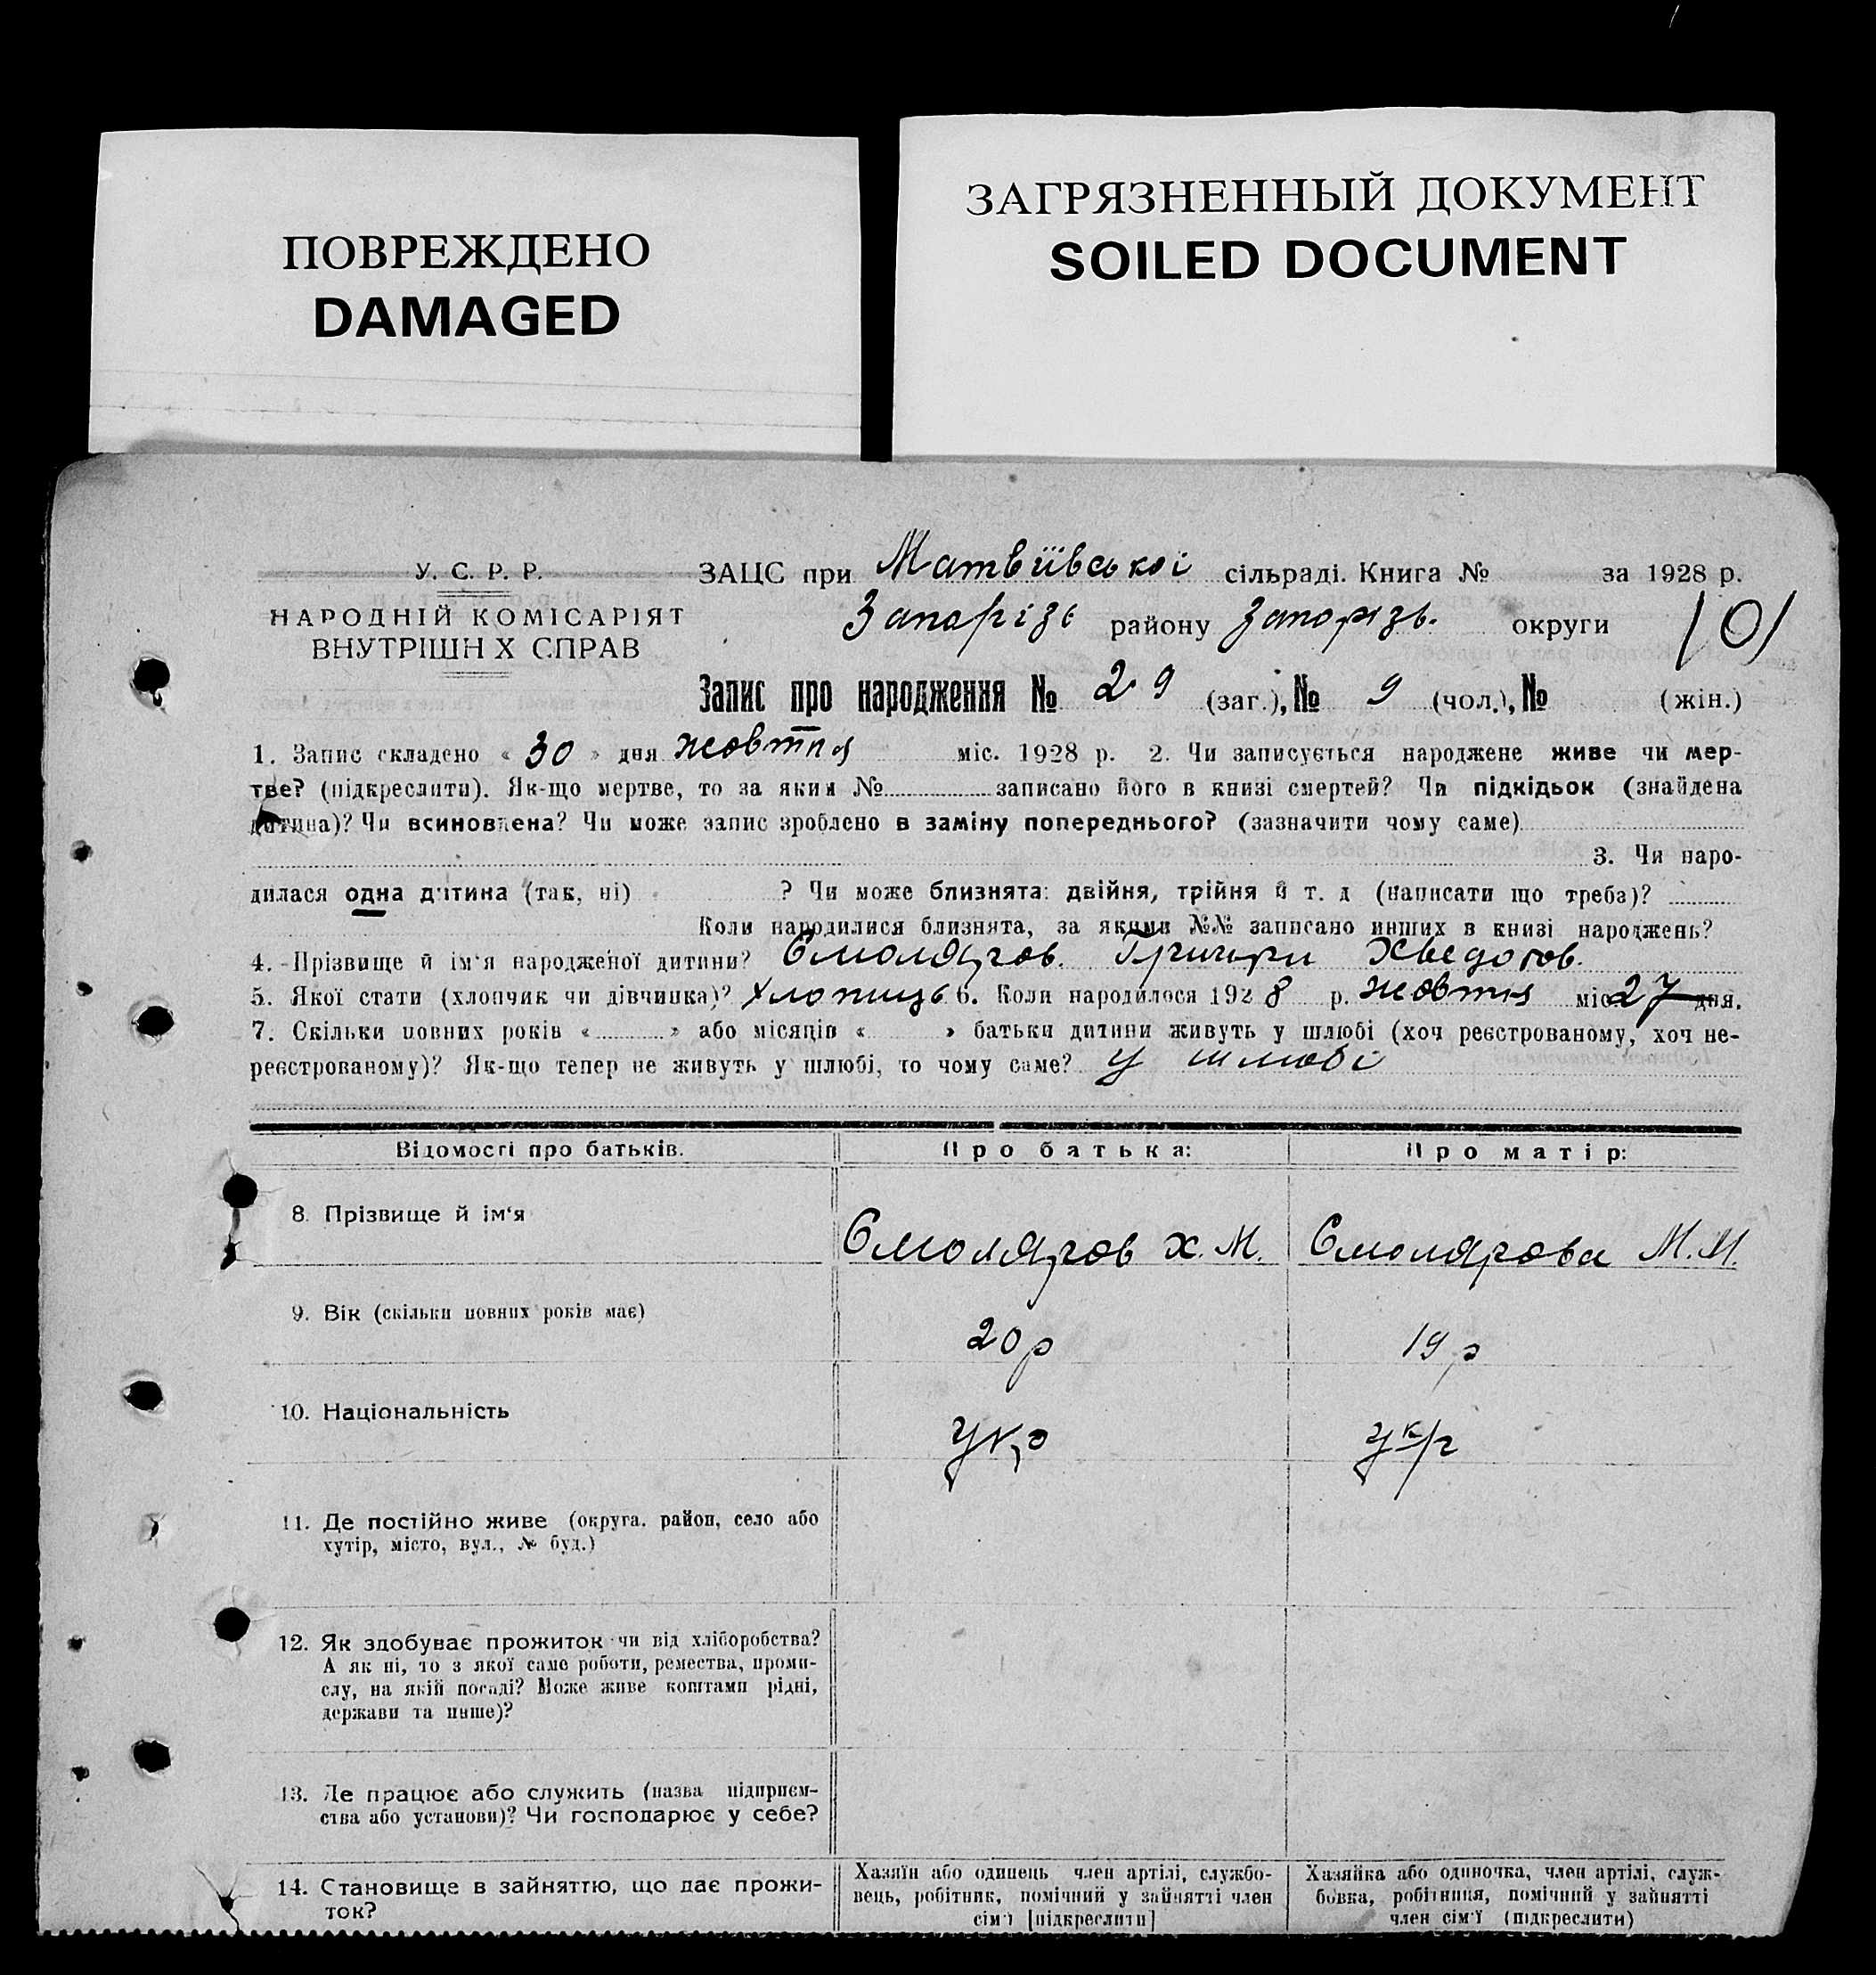 ПОВРЕЖДЕНО
DAMAGED
ЗАГРЯЗНЕННЫЙ ДОКУМЕНТ
SOILED DOCUMENT
У. С. Р. Р.
НАРОДНІЙ КОМІСАРІЯТ
ВНУТРІШН Х СПРАВ
ЗАЦС при Матвіївської сільраді. Книга № за 1928 р.
Запорізь району Запорізь. округи
101
Запис про народження № 29 (заг.), № 9 (чол.), № (жін.)
1. Запис складено « 30 » дня жовтня міс. 1928 р. 2. Чи записується народжене живе чи мер-
тве? (підкреслити). Як-що мертве, то за яким № записано його в книзі смертей? Чи підкідьок (знайдена
дитина)? Чи всиновлена? Чи може запис зроблено в заміну попереднього? (зазначити чому саме)
3. Чи наро-
дилася одна дитина (так, ні) ? Чи може близнята: двійня, трійня й т. д (написати що треба)?
Коли народилися близнята, за якими №№ записано инших в книзі народжень?
4. Прізвище й ім'я народженої дитини? Смоляров. Григори Хведоров.
5. Якої стати (хлопчик чи дівчинка)? Хлопиць 6. Коли народилося 1928 р. жовтня міс 27 дня.
7. Скільки повних років « » або місяців « » батьки дитини живуть у шлюбі (хоч реєстрованому, хоч не-
реєстрованому)? Як-що тепер не живуть у шлюбі, то чому саме? У шлюбі
Відомості про батьків. Про батька: Про матір:
8. Прізвище й ім'я Смоляров Х. М. Смолярова М. М.
9. Вік (скільки повних років має) 20 р 19 р
10. Національність укр укр
11. Де постійно живе (округа. район, село або
хутір, місто, вул., № буд.)
12. Як здобуває прожиток чи від хліборобства?
А як ні, то з якої саме роботи, ремества, проми-
слу, на якій посаді? Може живе коштами рідні,
держави та инше)?
13. Де працює або служить (назва підприєм-
ства або установи)? Чи господарює у себе?
14. Становище в зайняттю, що дає прожи-
ток?
Хазяїн або одинець член артілі, службо-
вець, робітник, помічний у зайнятті член
сім'ї [підкреслити]
Хазяйка або одиночка, член артілі, служ-
бовка, робітниця, помічний у зайнятті
член сім'ї (підкреслити)